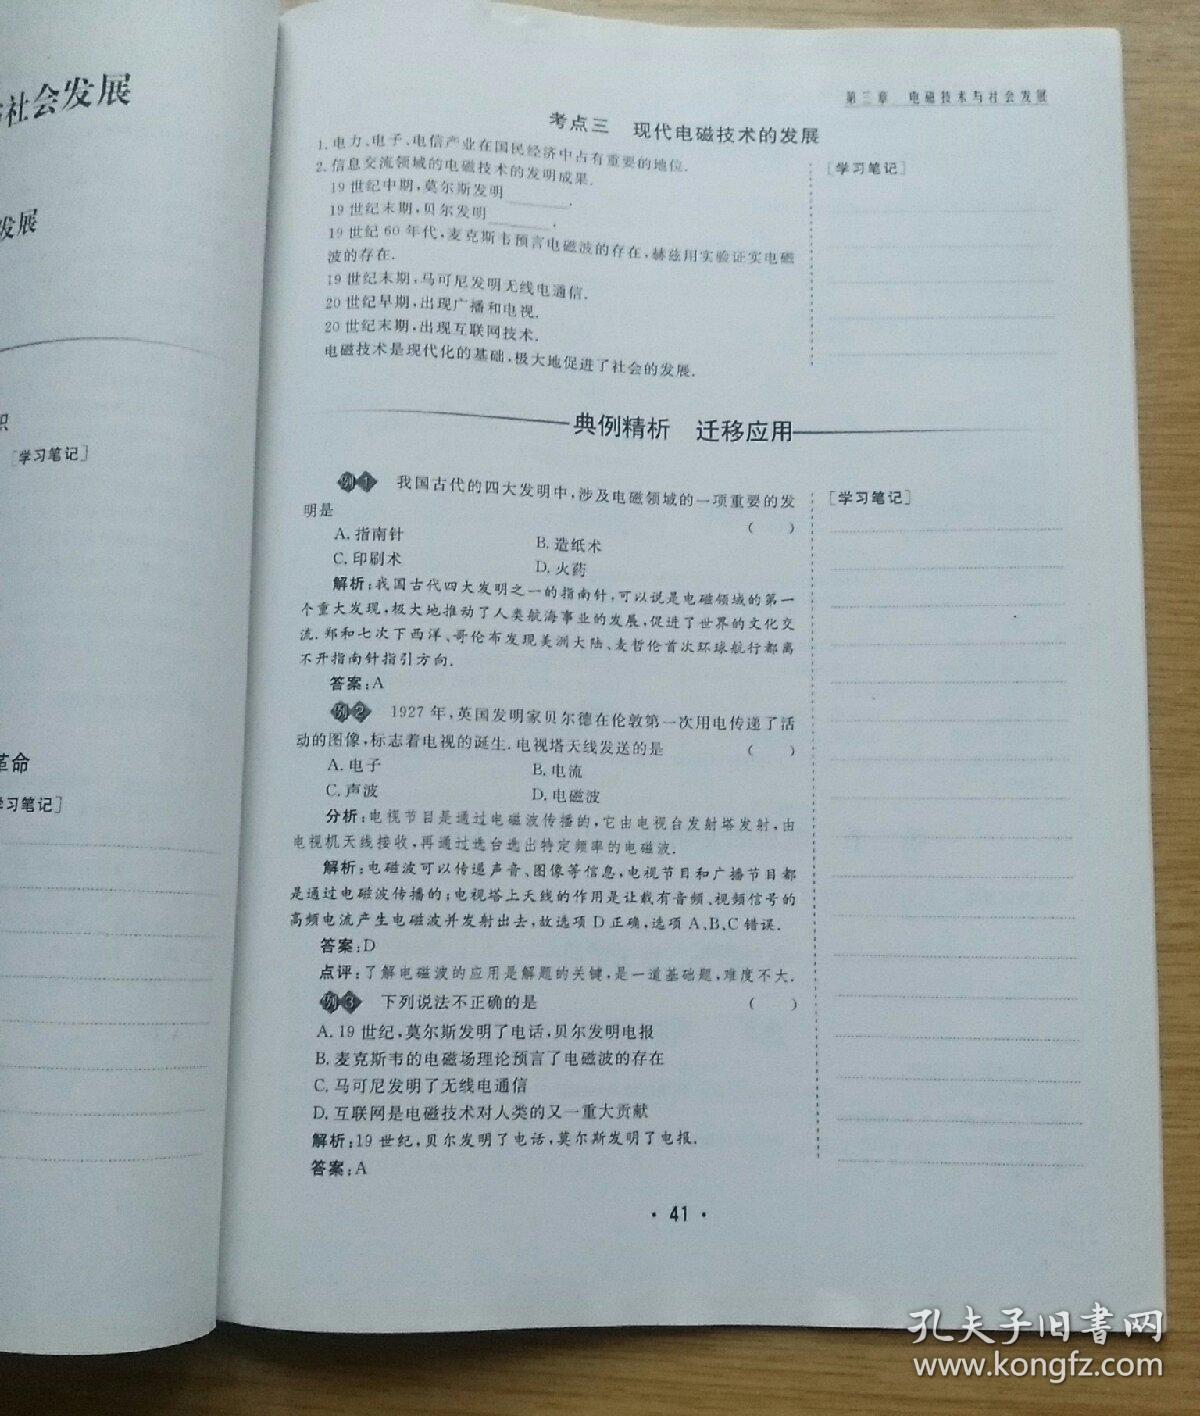 社会发展
发展
识
[学习笔记]
革命
学习笔记]
第三章 电磁技术与社会发展
考点三 现代电磁技术的发展
1. 电力、电子、电信产业在国民经济中占有重要的地位.
2. 信息交流领域的电磁技术的发明成果.
19世纪中期,莫尔斯发明________.
19世纪末期,贝尔发明________.
19世纪60年代,麦克斯韦预言电磁波的存在,赫兹用实验证实电磁
波的存在.
19世纪末期,马可尼发明无线电通信.
20世纪早期,出现广播和电视.
20世纪末期,出现互联网技术.
电磁技术是现代化的基础,极大地促进了社会的发展.
[学习笔记]
典例精析 迁移应用
例1 我国古代的四大发明中,涉及电磁领域的一项重要的发
明是 ( )
A. 指南针 B. 造纸术
C. 印刷术 D. 火药
解析:我国古代四大发明之一的指南针,可以说是电磁领域的第一
个重大发现,极大地推动了人类航海事业的发展,促进了世界的文化交
流.郑和七次下西洋、哥伦布发现美洲大陆、麦哲伦首次环球航行都离
不开指南针指引方向.
答案:A
例2 1927年,英国发明家贝尔德在伦敦第一次用电传递了活
动的图像,标志着电视的诞生.电视塔天线发送的是 ( )
A. 电子 B. 电流
C. 声波 D. 电磁波
分析:电视节目是通过电磁波传播的,它由电视台发射塔发射,由
电视机天线接收,再通过选台选出特定频率的电磁波.
解析:电磁波可以传递声音、图像等信息,电视节目和广播节目都
是通过电磁波传播的;电视塔上天线的作用是让载有音频、视频信号的
高频电流产生电磁波并发射出去,故选项D正确,选项A、B、C错误.
答案:D
点评:了解电磁波的应用是解题的关键,是一道基础题,难度不大.
例3 下列说法不正确的是 ( )
A. 19世纪,莫尔斯发明了电话,贝尔发明电报
B. 麦克斯韦的电磁场理论预言了电磁波的存在
C. 马可尼发明了无线电通信
D. 互联网是电磁技术对人类的又一重大贡献
解析:19世纪,贝尔发明了电话,莫尔斯发明了电报.
答案:A
[学习笔记]
· 41 ·
孔夫子旧书网
www.kongfz.com